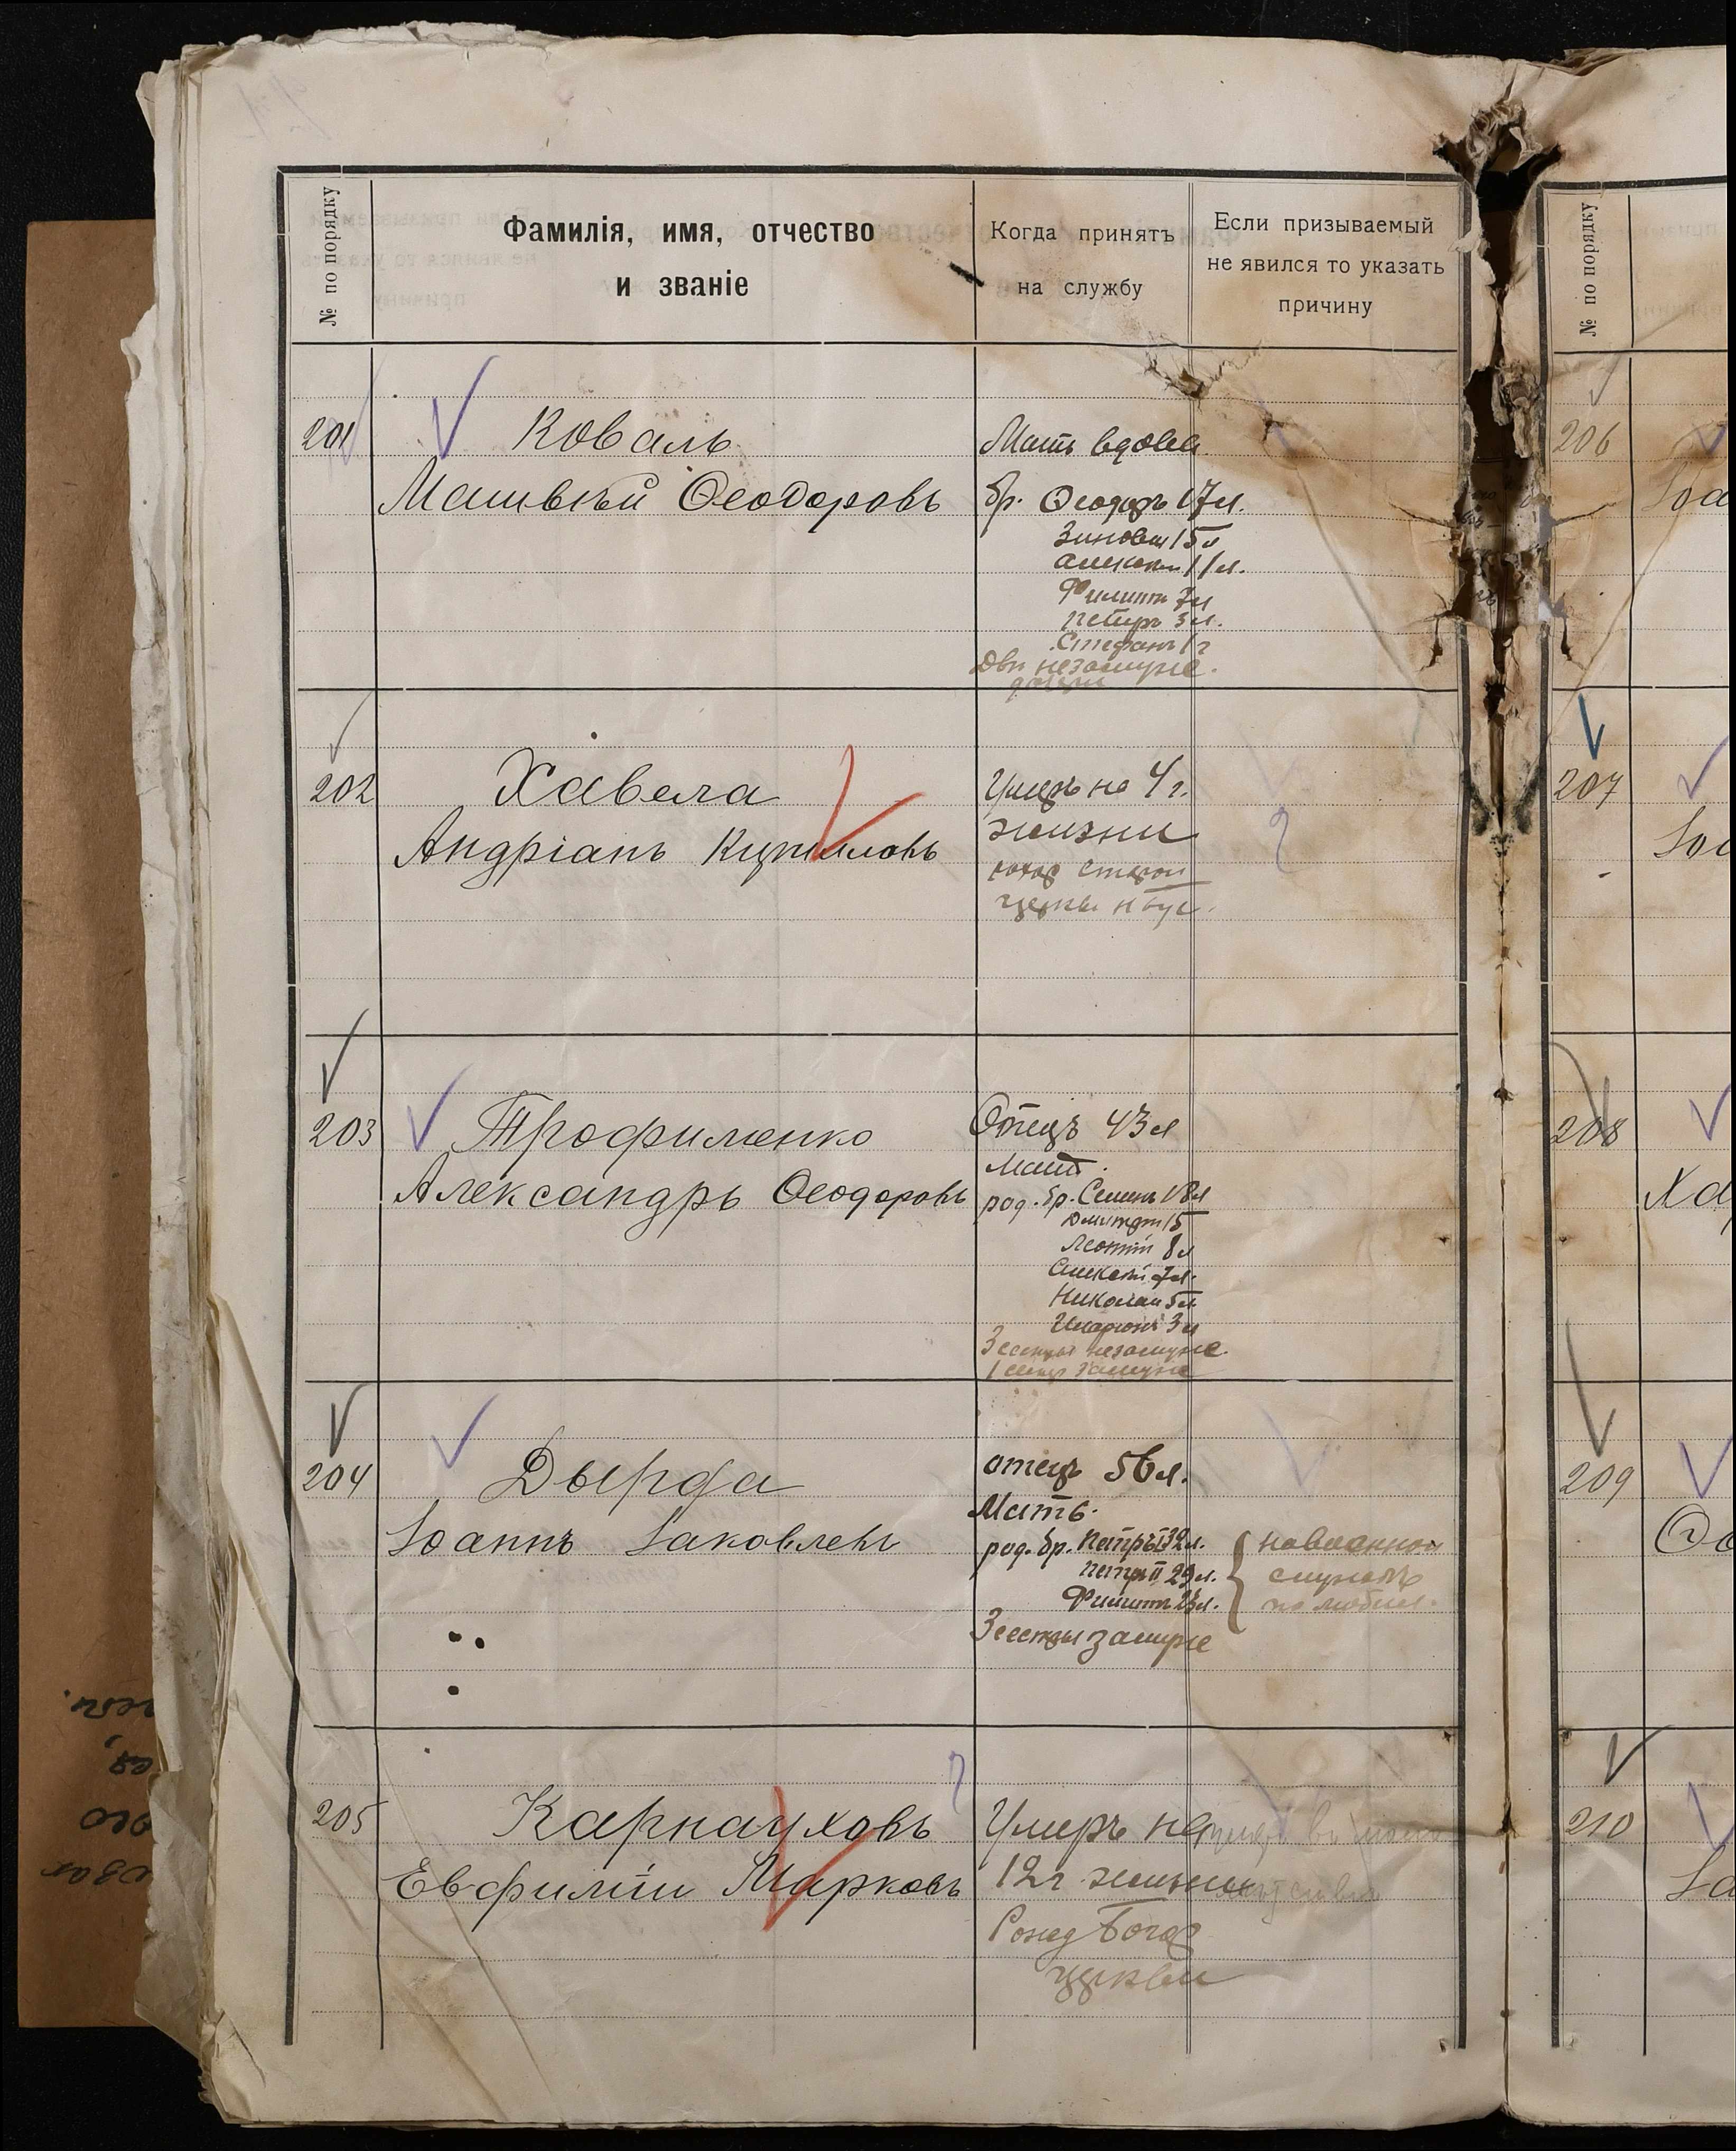 № по порядку
Фамилія, имя, отчество
и званіе
Когда принятъ
на службу
Если призываемый
не явился то указать
причину
201
Коваль
Матвѣй Ѳеодоровъ
Мать вдова
бр. Ѳеодоръ 17 л.
Зиновій 15 л
Алексѣй 11 л.
Филиппъ 7 л
Петръ 3 л.
Стефанъ 1 г
Двѣ незамуже.
202
Хавела
Андріанъ Кирилловъ
Умеръ на 4 г.
жизни
церкви
203
Трофименко
Александръ Ѳеодоровъ
Отецъ 43 л
Мать.
род. бр. Семенъ 18 л
Димитрій 15
Леонтій 8 л
Алексѣй 7 л.
Николай 5 л
Иларіонъ 3 л
3 сестры незамуже.
1 сестр замуже
204
Дырда
Іоаннъ Іаковлевъ
отецъ 56 л.
Мать.
род. бр. Петръ I 32 л.
Петръ II 29 л.
Филиппъ 23 л.
3 сестры замуже
205
Карнауховъ
Евфимій Марковъ
Умеръ на
12 г. жизни
церкви
№ по порядку
206
Іоа
207
Іоа
208
Ха
209
210
Іа